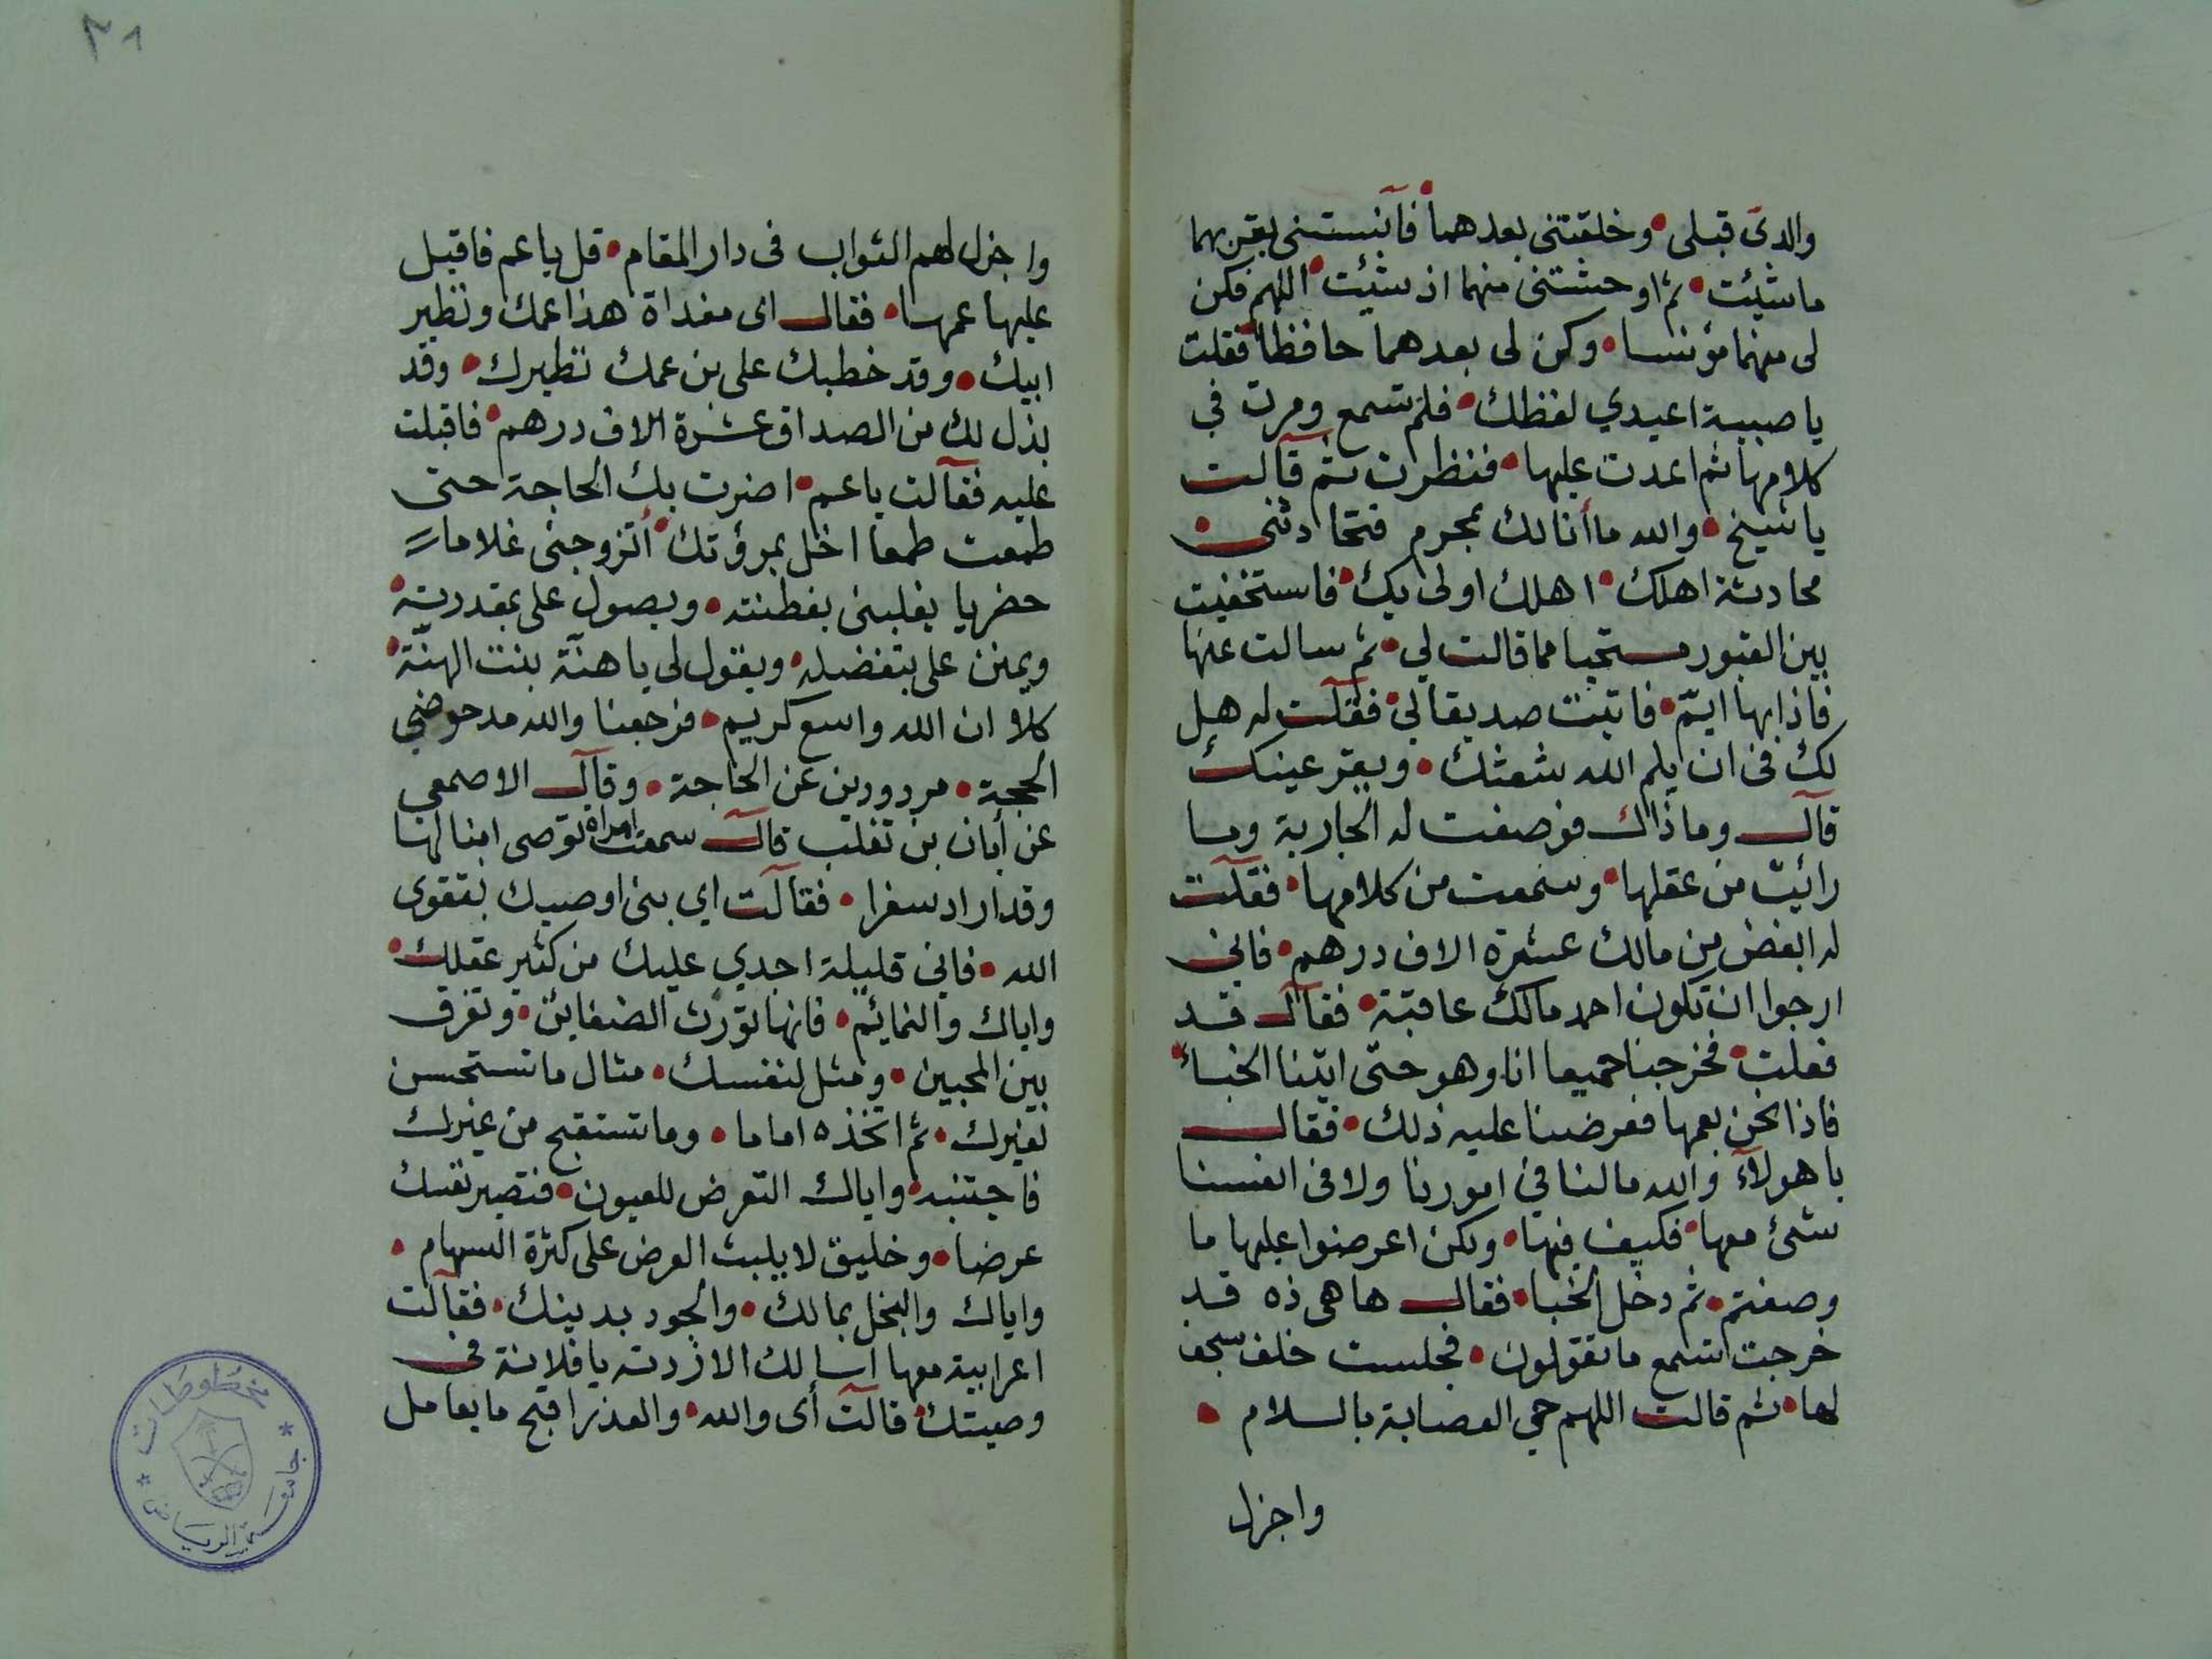 والدي قبلي • وخلقتني بعدهما فآنستني بقربهما
ما شئت • ثم اوحشتني منهما اذ شئت • اللهم فكن
لى منهما مؤنسا • وكن لى بعدهما حافظا • فقلت
يا صبية اعيدي لفظك • فلم تسمع ومرت في
كلامها ثم اعدت عليها • فنظرت ثم قالت
يا شيخ • والله ما أنا لك بمحرم فتحادثني •
محادثة اهلك • اهلك اولى بك • فاستخفيت
بين القبور مستحيا مما قالت لي • ثم سالت عنها
فاذا بها ايّم • فاتيت صديقا لي • فقلت له هل
لك فى ان يلم الله شعثك • ويقر عينك
قال وما ذاك فوصفت له الجارية وما
رائيت من عقلها • وسمعت من كلامها • فقلت
له افض من مالك عشرة الاف درهم • فانى
ارجوا ان تكون احمد مالك عاقبة • فقال قد
فعلت • فخرجنا جميعا انا وهو حتى اتينا الخباء
فاذا نحن بعمها فعرضنا عليه ذلك • فقال
يا هولآء والله ما لنا في امورنا ولا فى انفسنا
شئ معها • فكيف فيها • ولكن اعرضوا عليها ما
وصفتم • ثم دخل الخبا • فقال ها هى ذه قد
خرجت تسمع ما تقولون • فجلست خلف سجف
لها • ثم قالت اللهم حي العصابة بالسلام •
واجزل
٣١
واجزل لهم الثواب فى دار المقام • قل يا عم فاقبل
عليها عمها • فقال اى مفداة هذا عمك ونظير
ابيك • وقد خطبك على بن عمك نظيرك • وقد
بذل لك من الصداق عشرة الاف درهم • فاقبلت
عليه فقالت يا عم • اضرت بك الحاجة حتى
طمعت طمعا اخل بمروتك • أتزوجنى غلاما
حضريا يغلبنى بفطنته • ويصول على بمقدرته •
ويمنن على بتفضله • ويقول لى يا هنّة بنت الهنّة •
كلا ان الله واسع كريم • فرجعنا والله مدحوضي
الحجة • مردودين عن الحاجة • وقال الاصمعي
عن أبان بن تغلب قال سمعت امراة توصى ابنا لها
وقد اراد سفرا • فقالت اي بنى اوصيك بتقوى
الله • فاني قليلة اجدي عليك من كثير عقلك •
واياك والنمائم • فانها تورث الضغاين • وتفرق
بين المحبين • ومثل لنفسك • مثال ما تستحسن
لغيرك • ثم اتخذه اماما • وما تستقبح من غيرك
فاجتنبه • واياك التعرض للعيون • فتصير نفسك
عرضا • وخليق لا يلبث العرض على كثرة السهام •
واياك والبخل بمالك • والجود بدينك • فقالت
اعرابية معها اسالك الا زدته يا فلانة فى
وصيتك • قالت أى والله • والغدر اقبح ما يعامل
مخطوطات
جامعة الرياض